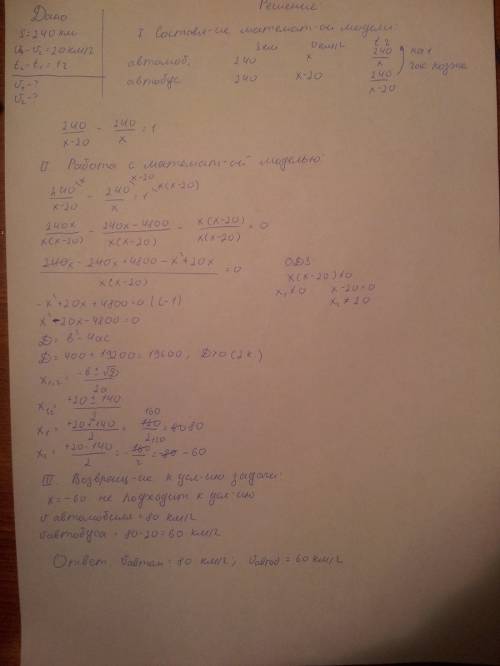 Дано
S = 240 км
v₁ - v₂ = 20 км/ч
t₂ - t₁ = 1ч
v₁ - ?
v₂ - ?
Решение:
I Составл-ие математ-ой модели:
S км v км/ч t, ч
автомоб. 240 x 240/x на 1
автобус 240 x-20 240/x-20 час позже
240/x-20 - 240/x = 1
II. Работа с математ-ой моделью:
240/x-20 \x - 240/x \x-20 = 1 \x(x-20)
240x/x(x-20) - 240x-4800/x(x-20) - x(x-20)/x(x-20) = 0
240x - 240x + 4800 - x² + 20x/x(x-20) = 0
ОДЗ:
x(x-20)≠0
x₁≠0 x-20≠0
x₂≠20
-x²+20x+4800=0 |(-1)
x²-20x-4800=0
D = b²-4ac
D = 400+19200=19600, D>0 (2 к.)
x₁,₂ = -b±√D/2a
x₁,₂ = +20±140/2
x₁ = +20+140/2 = 160/2 = 80
x₂ = +20-140/2 = -120/2 = -60
III. Возвращ-ие к усл-ию задачи:
x=-60 не подходит к усл-ию
v автомобиля = 80 км/ч
v автобуса = 80-20=60 км/ч
Ответ. vавтом = 80 км/ч; vавтоб = 60 км/ч